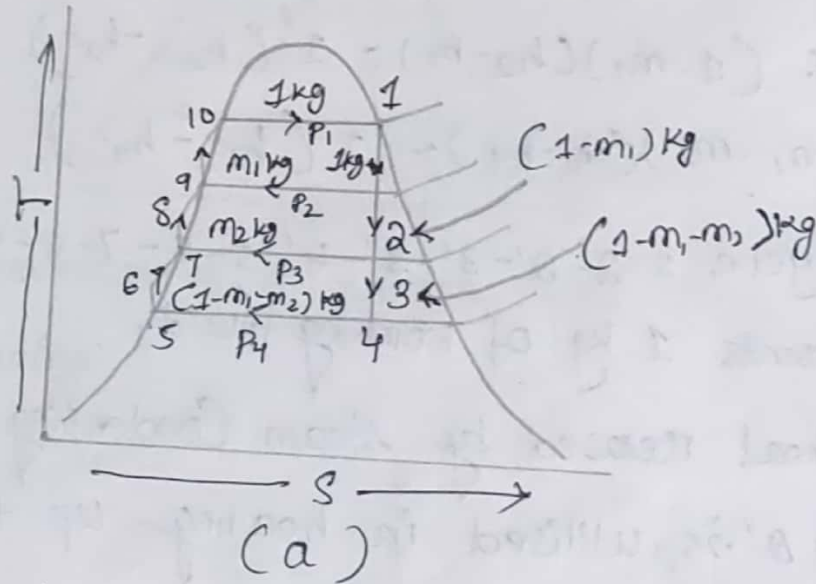 T
10
1kg
1
P₁
9
m₁kg
1kg
P₂
(1-m₁) kg
8
m₂kg
2
(1-m₁-m₂) kg
P₃
6
7
(1-m₁-m₂) kg
3
5
P₄
4
S
(a)